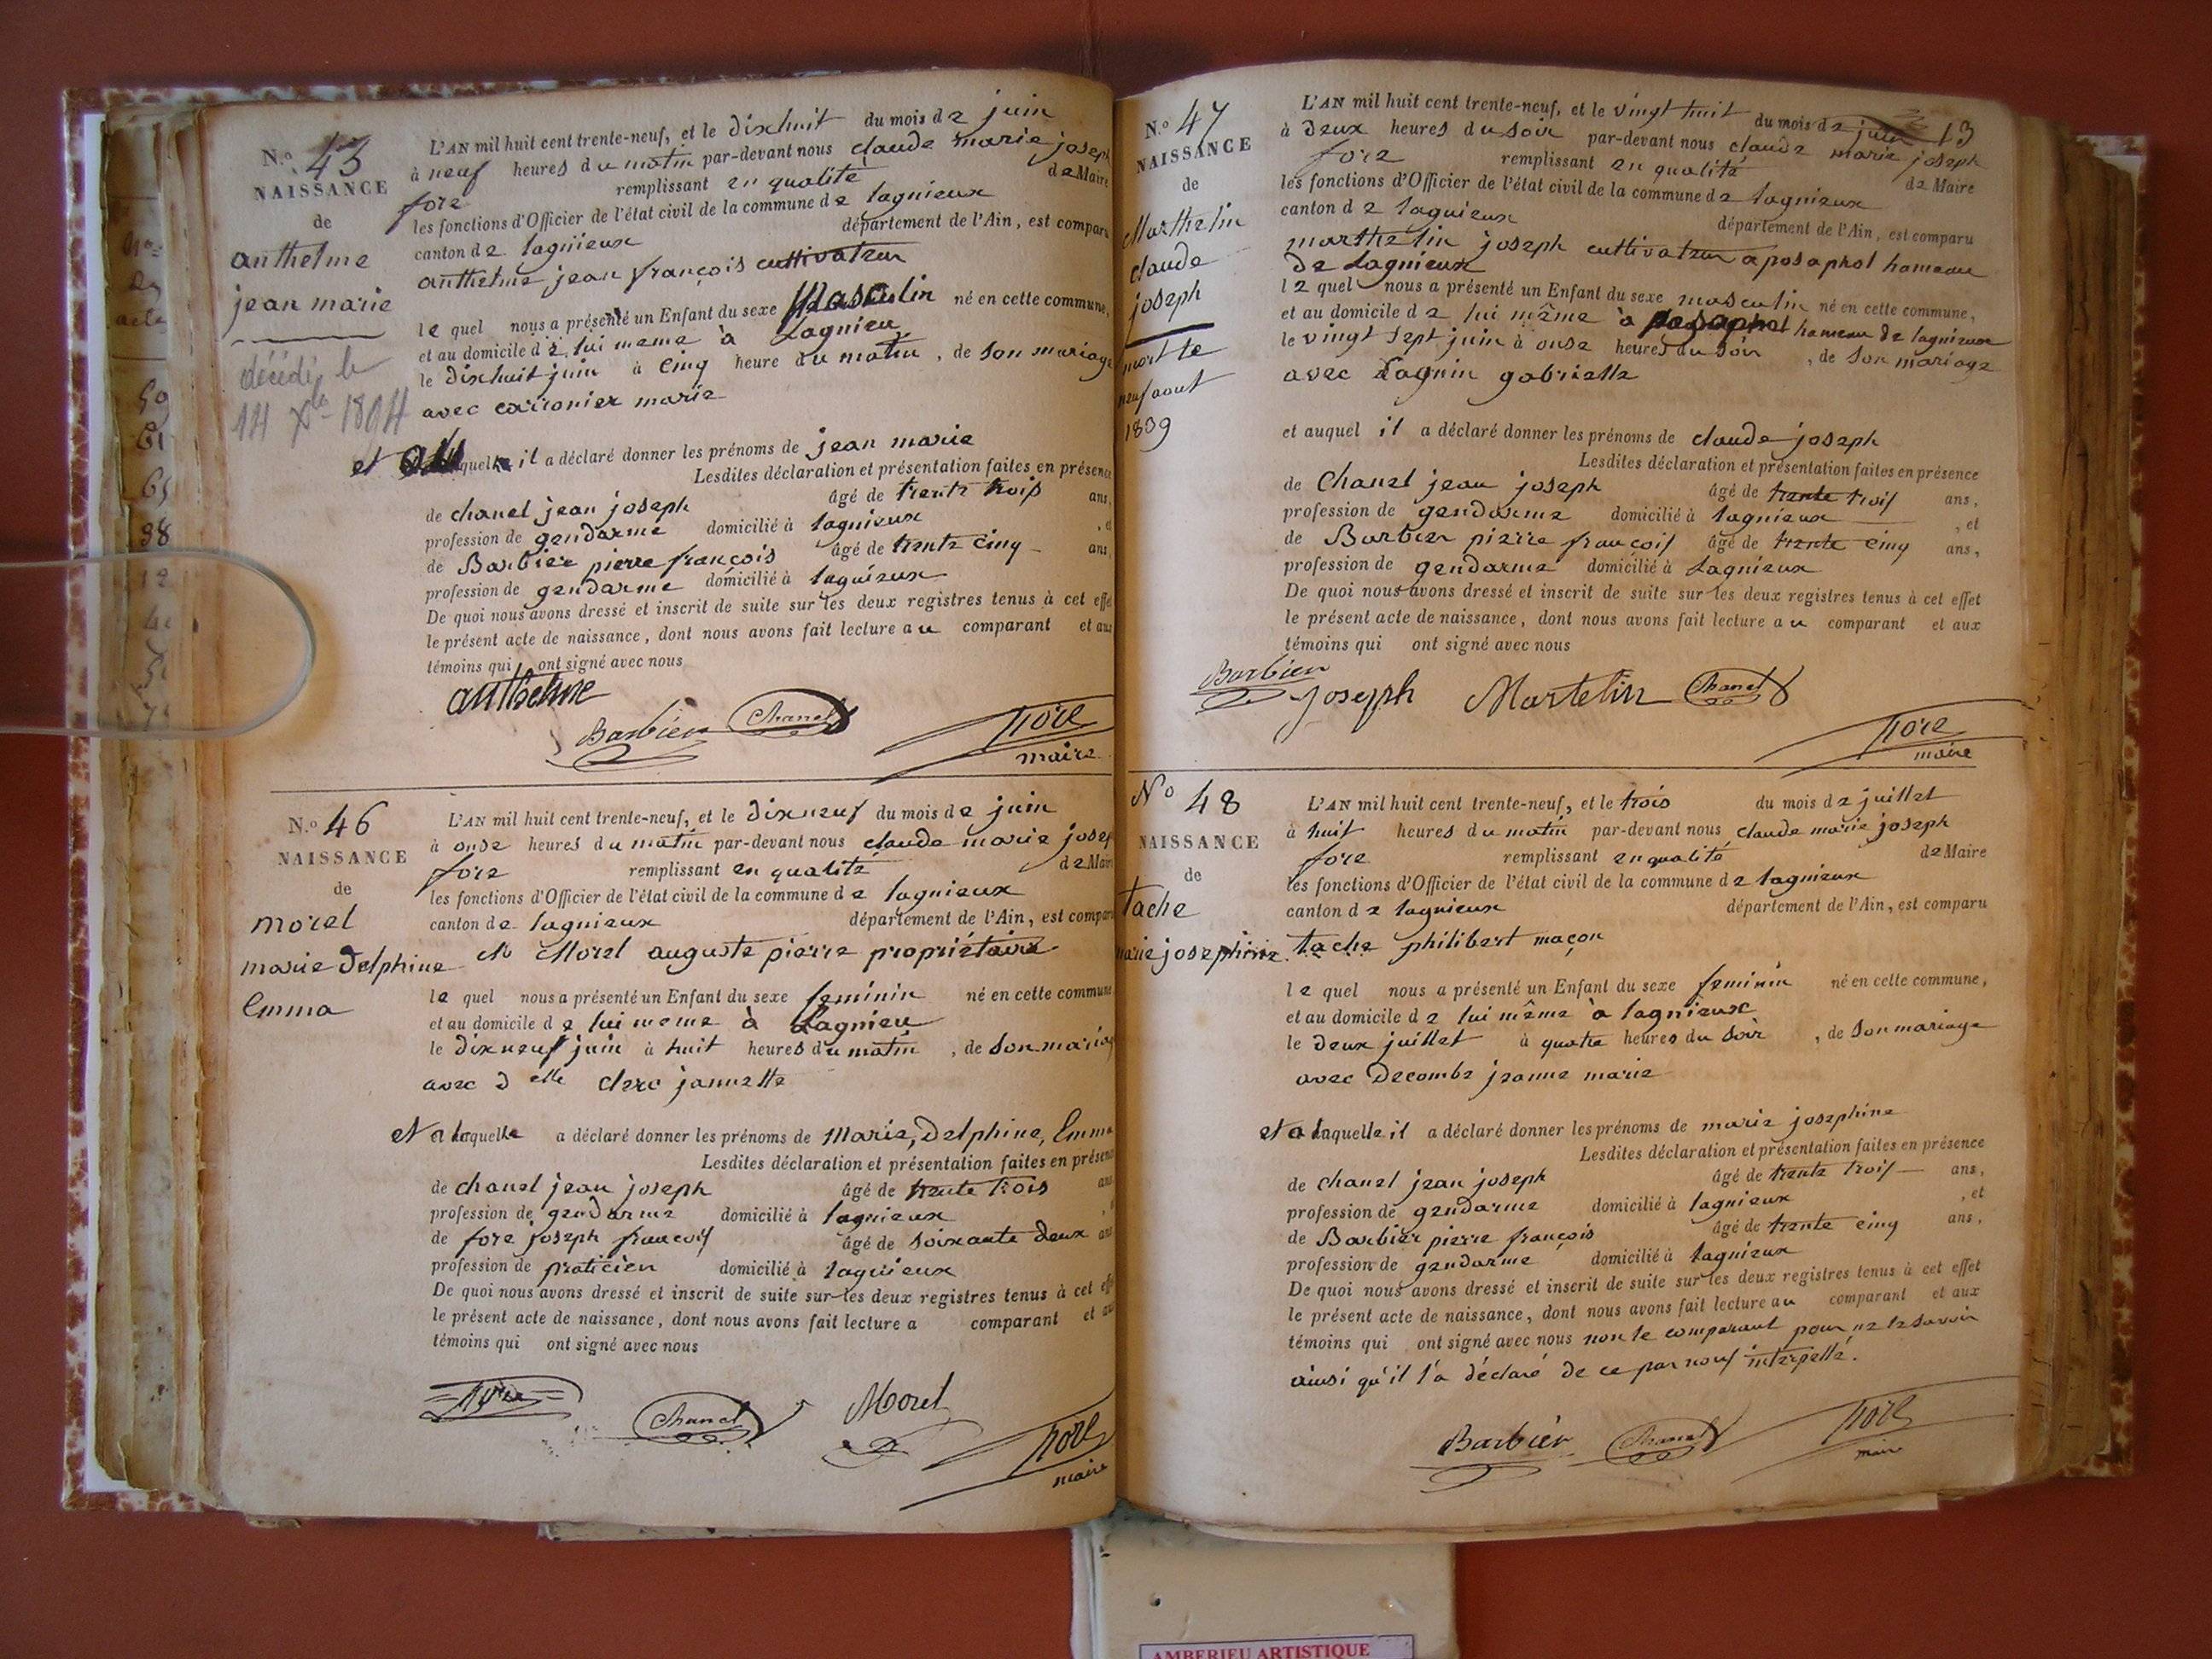 N.o 45
NAISSANCE
de
anthelme
jean marie
décédé le
14 Xbre 1894
L'AN mil huit cent trente-neuf, et le dixhuit du mois de juin
à neuf heures du matin par-devant nous claude marie joseph
fore remplissant en qualité de Maire
les fonctions d'Officier de l'état civil de la commune de lagnieux
canton de lagnieux département de l'Ain, est comparu
anthelme jean françois cultivateur
le quel nous a présenté un Enfant du sexe Masculin né en cette commune,
et au domicile de lui meme à Lagnieu
le dixhuit juin à cinq heure du matin, de son mariage
avec carronier marie
et quelle il a déclaré donner les prénoms de jean marie
Lesdites déclaration et présentation faites en présence
de chanel jean joseph âgé de trente trois ans,
profession de gendarme domicilié à lagnieux, et
de Barbier pierre françois âgé de trente cinq ans,
profession de gendarme domicilié à lagnieux
De quoi nous avons dressé et inscrit de suite sur les deux registres tenus à cet effet
le présent acte de naissance, dont nous avons fait lecture au comparant et aux
témoins qui ont signé avec nous
anthelme
Barbier Chanel fore
maire
N.o 46
NAISSANCE
de
morel
marie delphine
Emma
L'AN mil huit cent trente-neuf, et le dixneuf du mois de juin
à onse heures du matin par-devant nous claude marie josep
fore remplissant en qualité de Maire
les fonctions d'Officier de l'état civil de la commune de lagnieux
canton de lagnieux département de l'Ain, est comparu
Mr Morel auguste pierre propriétaire
le quel nous a présenté un Enfant du sexe feminin né en cette commune
et au domicile de lui meme à Lagnieu
le dixneuf juin à huit heures du matin, de son mariag
avec delle clerc jannette
et a laquelle a déclaré donner les prénoms de Marie, Delphine, Emma
Lesdites déclaration et présentation faites en présence
de chanel jean joseph âgé de trente trois ans
profession de gendarme domicilié à lagnieux
de fore joseph françois âgé de soixante deux ans
profession de praticien domicilié à lagnieux
De quoi nous avons dressé et inscrit de suite sur les deux registres tenus à cet effet
le présent acte de naissance, dont nous avons fait lecture a comparant et aux
témoins qui ont signé avec nous
fore Chanel Morel fore
maire
13
N.o 47
NAISSANCE
de
Marthelin
claude
joseph
mort le
neuf aout
1839
L'AN mil huit cent trente-neuf, et le vingt huit du mois de juin
à deux heures du soir par-devant nous claude marie joseph
fore remplissant en qualité de Maire
les fonctions d'Officier de l'état civil de la commune de lagnieux
canton de lagnieux département de l'Ain, est comparu
marthelin joseph cultivateur a posaphol hameau
de Lagnieux
le quel nous a présenté un Enfant du sexe masculin né en cette commune,
et au domicile de lui même à posaphol hameau de lagnieux
le vingt sept juin à onse heures du soir, de son mariage
avec Lagnin gabrielle
et auquel il a déclaré donner les prénoms de claude joseph
Lesdites déclaration et présentation faites en présence
de Chanel jean joseph âgé de trente trois ans,
profession de gendarme domicilié à lagnieux, et
de Barbier pierre françois âgé de trente cinq ans,
profession de gendarme domicilié à Lagnieux
De quoi nous avons dressé et inscrit de suite sur les deux registres tenus à cet effet
le présent acte de naissance, dont nous avons fait lecture au comparant et aux
témoins qui ont signé avec nous
Barbier joseph Martelin Chanel
fore
maire
No 48
NAISSANCE
de
tache
marie josephine
L'AN mil huit cent trente-neuf, et le trois du mois de juillet
à huit heures du matin par-devant nous claude marie joseph
fore remplissant en qualité de Maire
les fonctions d'Officier de l'état civil de la commune de lagnieux
canton de lagnieux département de l'Ain, est comparu
tache philibert maçon
le quel nous a présenté un Enfant du sexe feminin né en cette commune,
et au domicile de lui même à lagnieux
le deux juillet à quatre heures du soir, de son mariage
avec Decombe jeanne marie
et a laquelle il a déclaré donner les prénoms de marie josephine
Lesdites déclaration et présentation faites en présence
de chanel jean joseph âgé de trente trois ans,
profession de gendarme domicilié à lagnieux, et
de Barbier pierre françois âgé de trente cinq ans,
profession de gendarme domicilié à lagnieux
De quoi nous avons dressé et inscrit de suite sur les deux registres tenus à cet effet
le présent acte de naissance, dont nous avons fait lecture au comparant et aux
témoins qui ont signé avec nous non le comparant pour ne le savoir
ainsi qu'il l'a déclaré de ce par nous interpellé.
Barbier Chanel fore
maire
AMBERIEU ARTISTIQUE